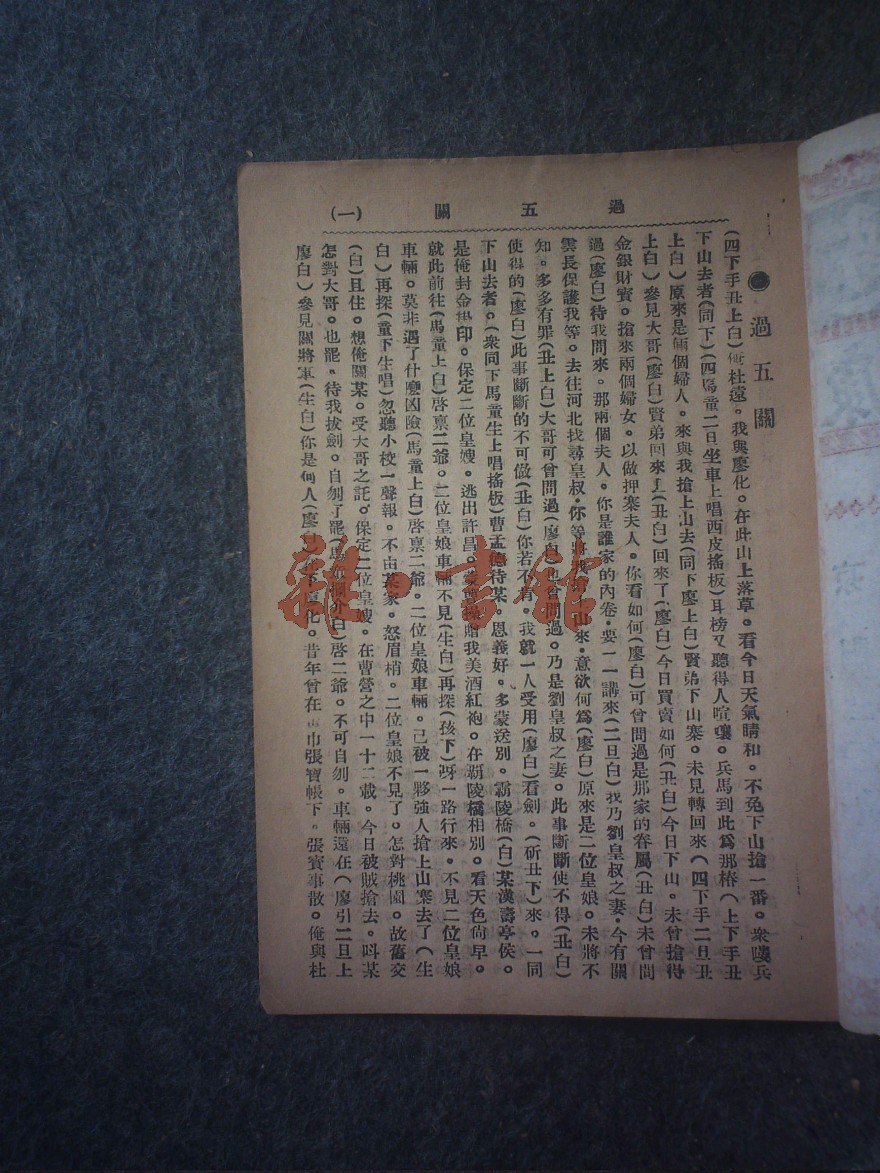 過五關 (一)
過五關
(四下手丑上白)俺杜遠。我與廖化。在此山上落草。看今日天氣晴和。不免下山搶一番。衆嘍兵
下山去者(同下)(四馬童二旦坐車上唱西皮搖板)耳榜又聽得人喧嚷。兵馬到此爲那樁(上下手丑
上白)原來是倆個婦人。來與我搶上山去(同下廖上白)賢弟下山寨。未見轉回來(四下手二旦丑
上白)參見大哥(廖白)賢弟回來了(丑白)回來了(廖白)今日買賣如何(丑白)今日下山。未曾搶得
金銀財寶。搶來兩個婦女。以做押寨夫人。你看如何(廖白)可曾問過是那家的眷屬(丑白)未曾問
過(廖白)待我問來。那兩個夫人。你是誰家的內卷。要一一講來(二旦白)我乃劉皇叔之妻。今有關
雲長保護我等。去往河北找尋皇叔。你等將我搶上山來。意欲何爲(廖白)原來是二位皇娘。未將不
知。多多有罪(丑上白)大哥可曾問過(廖白)也曾問過。乃是劉皇叔之妻。此事斷斷使不得(丑白)
使得的(廖白)此事斷斷的不可做(丑白)你若不肯。我就一人受用(廖白)看劍。(斫丑下)來。一同
下山去者。(衆同下馬童生上唱搖板)曹孟德待某。恩義好。多蒙送別。霸陵橋(白)某漢壽亭侯。
是俺封金掛印。保定二位皇嫂。逃出許昌。蒙曹操贈我美酒紅袍。在霸陵橋相別。看天色尙早。
就此前往(馬童上白)啓禀二爺。二位皇娘車輛不見(生白)再探(孩下)呀一路行來。不見二位皇娘
車輛。莫非遇了什麼凶險(馬童上白)啓禀二爺。二位皇娘車輛。己被一夥強人搶上山寨去了(生
白)再探(童下生唱)忽聽小校一聲報。不由某家。怒眉梢。二位皇娘不見了。怎對桃園。故舊交
(白)且住。想俺關某。受大哥之託。保定二位皇嫂。在曹營之中一十二載。今日被賊搶去。呌某
怎對大哥。也罷。待我拔劍。自刎了罷(馬童攔介白)啓二爺。不可自刎。車輛還在(廖引二旦上
廖白)參見關將軍(生白)你是何人(廖白)在下廖化。昔年曾在黃巾張寶帳下。張寶事散。俺與杜
雜·書館